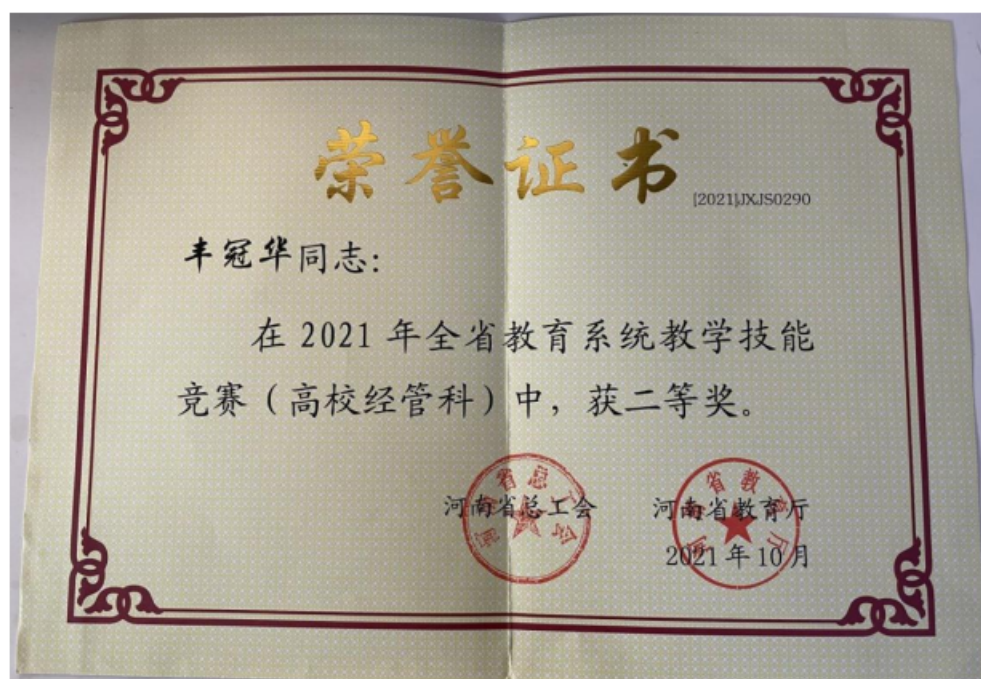 荣誉证书
[2021]JXJS0290
丰冠华同志:
在 2021 年全省教育系统教学技能
竞赛(高校经管科)中,获二等奖。
河南省总工会 河南省教育厅
2021 年 10 月
河南省总工会
河南省教育厅